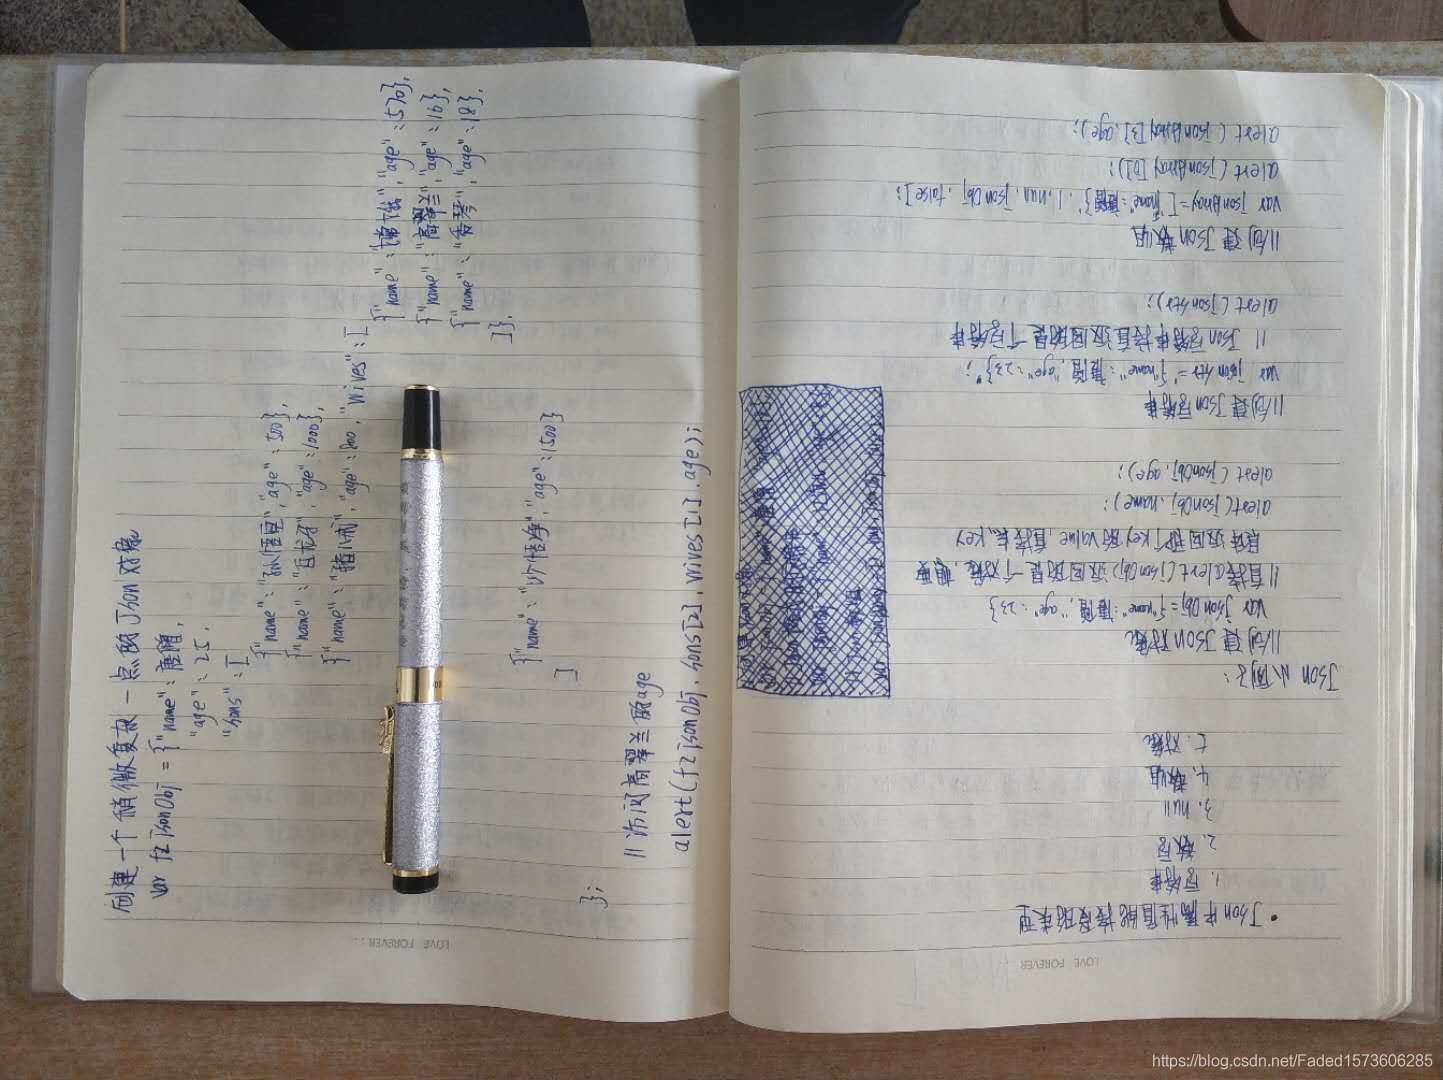 创建一个稍微复杂一点的Json对象
var tzjsonObj = {"name":唐僧,
"age":25,
"sons":[
{"name":"孙悟空","age":500},
{"name":"白龙马","age":1000},
{"name":"猪八戒","age":800,"wives":[
{"name":"嫦娥","age":570},
{"name":"高翠兰","age":16},
{"name":"香琴","age":18},
]},
{"name":"沙悟净","age":1500}
]
};
//访问高翠兰的age
alert(tzjsonObj.sons[2].wives[1].age);
LOVE FOREVER
•Json中属性值能接受的类型
1.字符串
2.数字
3.null
4.数组
5.对象
Json小例子:
//创建Json对象
var jsonObj={"name":"唐僧","age":23}
//直接alert(jsonObj)返回的是一个对象,想要
最终返回那个key的value,直接点key
alert(jsonObj.name);
alert(jsonObj.age);
//创建Json字符串
var jsonStr='{"name":"唐僧","age":23}';
//Json字符串接直返回的是个字符串
alert(jsonStr);
//创建Json数组
var jsonArray=[{"name":"唐僧"},1,null,jsonObj,false];
alert(jsonArray[0]);
alert(jsonArray[3].age);
LOVE FOREVER
https://blog.csdn.net/Faded1573606285